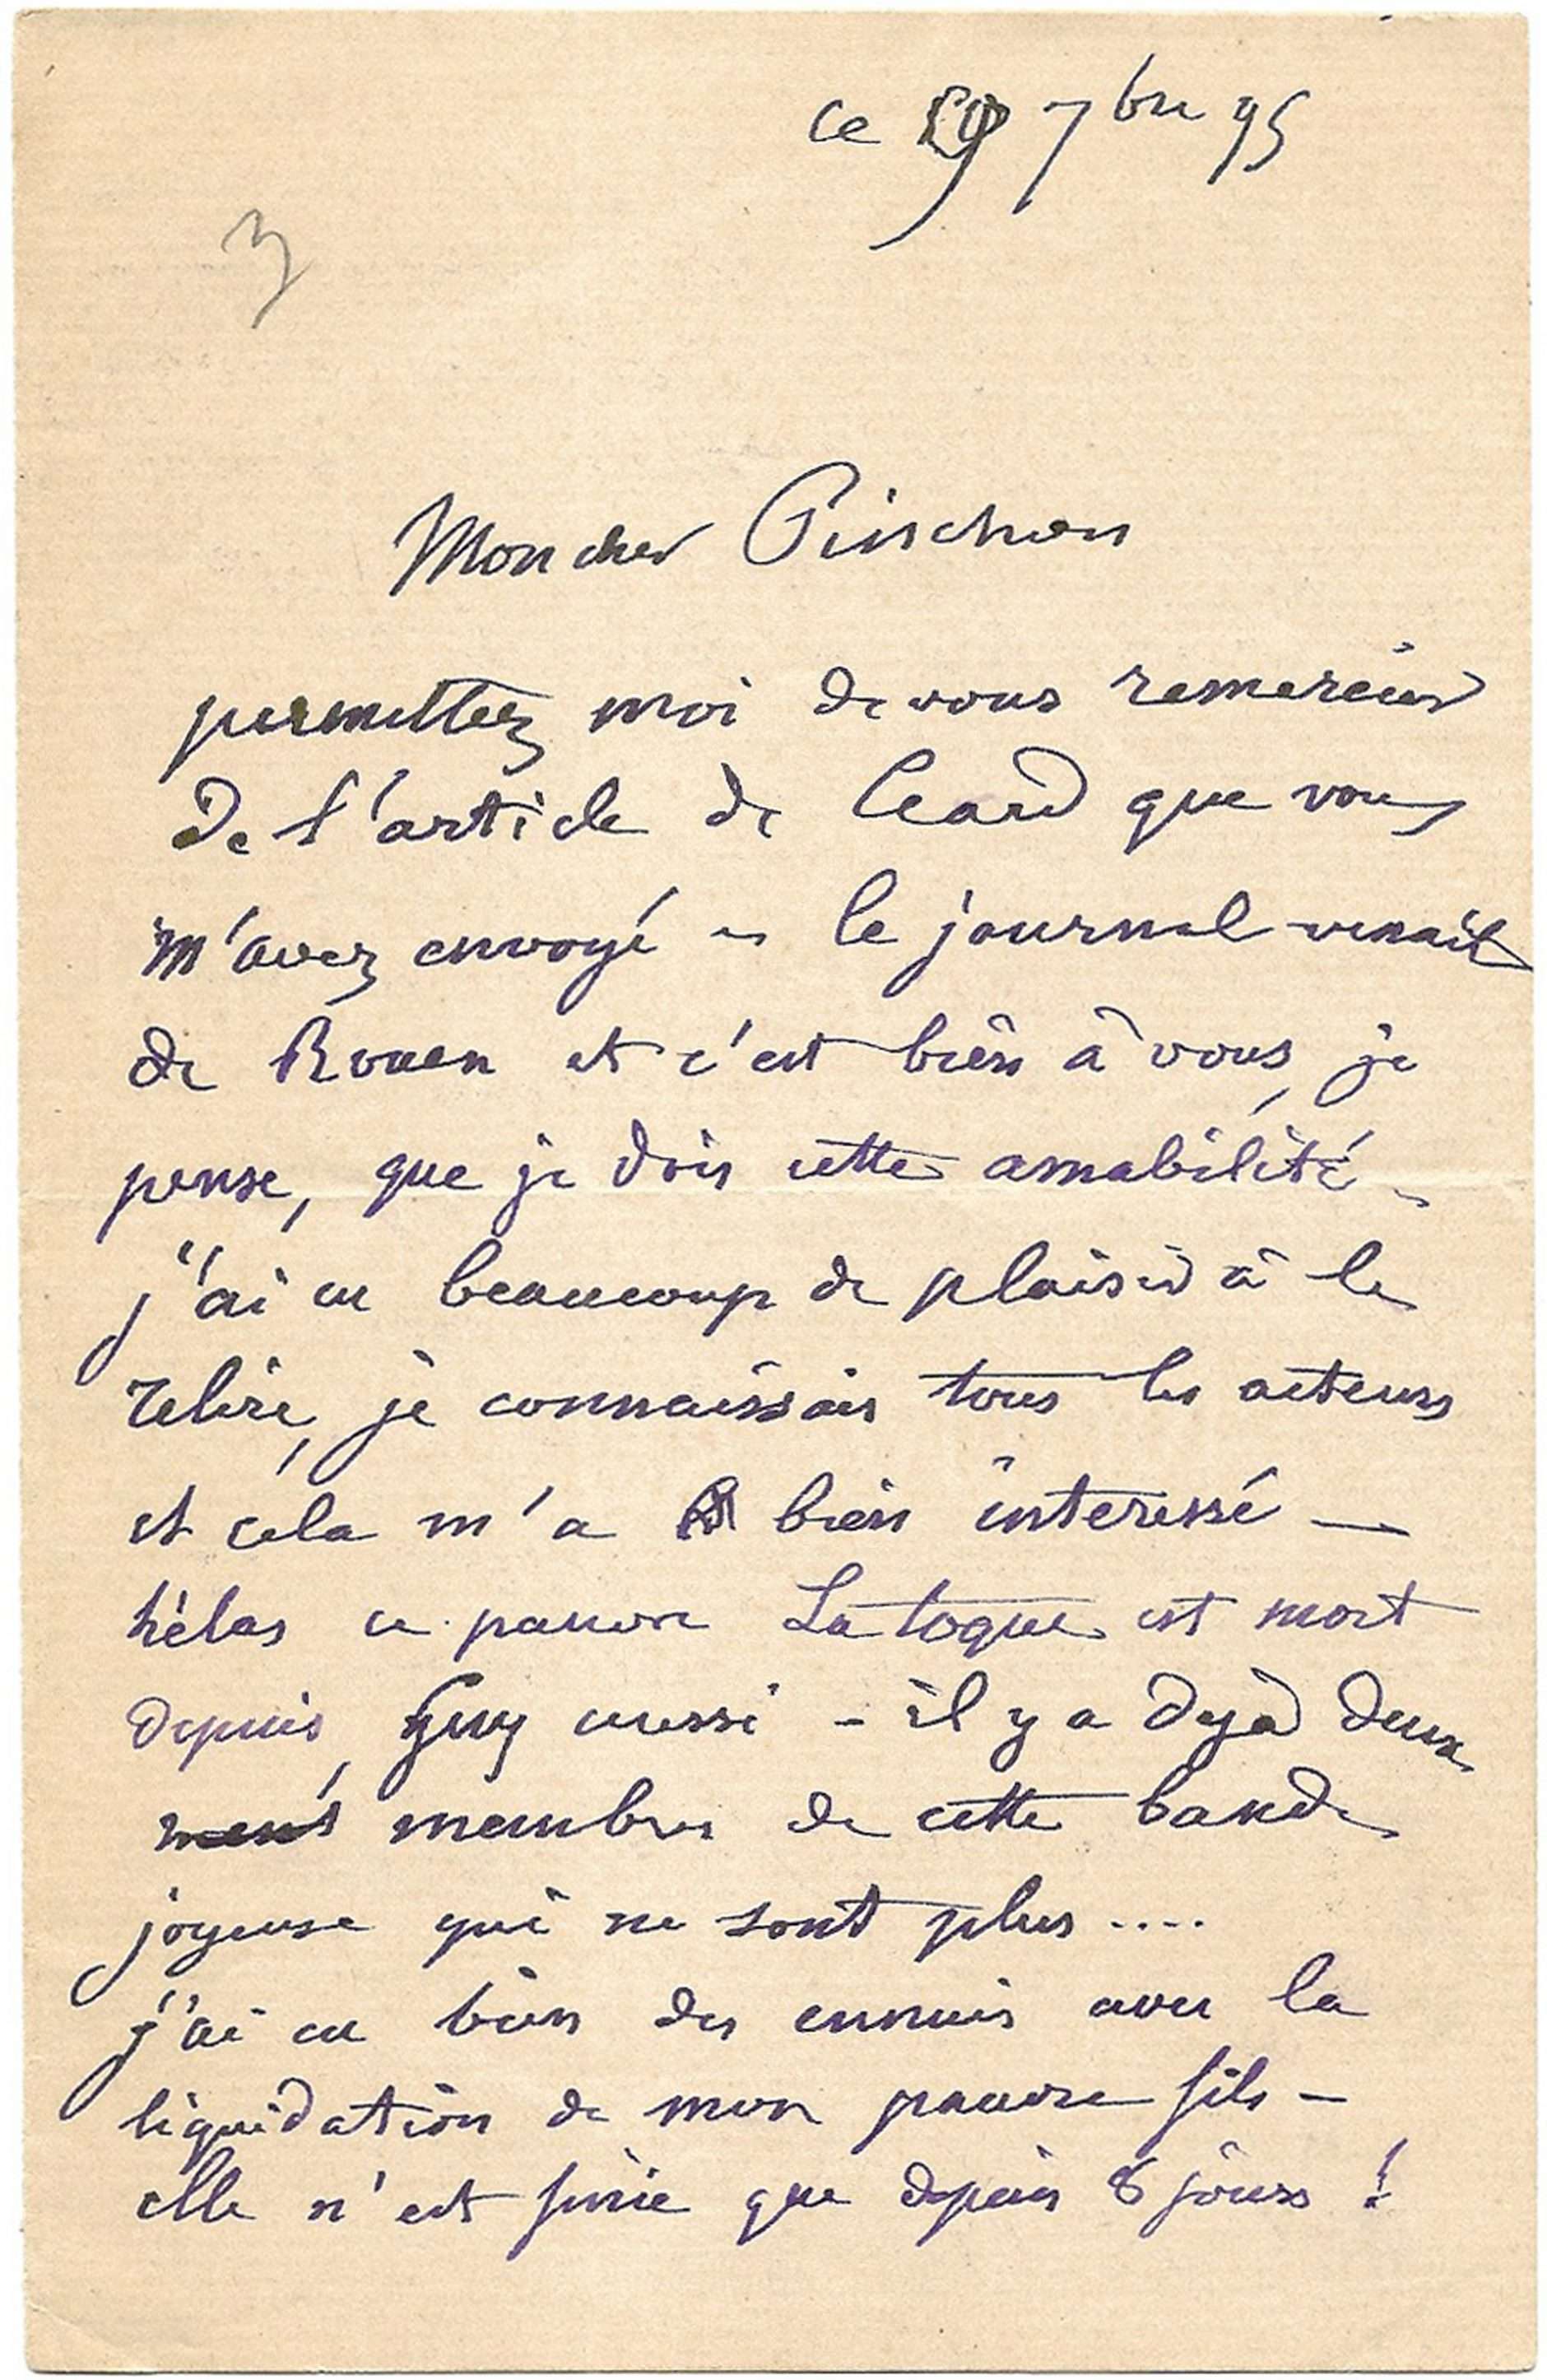 ce 29 7bre 95
3
Mon cher Pinchon
permettez moi de vous remercier
de l'article de Ceard que vous
m'avez envoyé - le journal venait
de Rouen et c'est bien à vous, je
pense, que je dois cette amabilité -
j'ai eu beaucoup de plaisir à le
relire, je connaissais tous les acteurs
et cela m'a bien interessé -
hélas ce pauvre La toque est mort
depuis, Guy aussi - il y a dejà deux
membres de cette bande
joyeuse qui ne sont plus ....
j'ai eu bien des ennuis avec la
liquidation de mon pauvre fils -
elle n'est finie que depuis 8 jours !